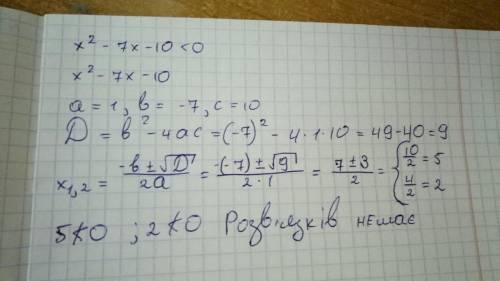 x² - 7x - 10 < 0
x² - 7x - 10
a = 1, b = -7, c = 10
D = b² - 4ac = (-7)² - 4·1·10 = 49 - 40 = 9
x₁,₂ = (-b ± √D)/2a = (-(-7) ± √9)/(2·1) = (7 ± 3)/2 = { 10/2 = 5 4/2 = 2
5≮0 ; 2≮0 Розвʼязків немає